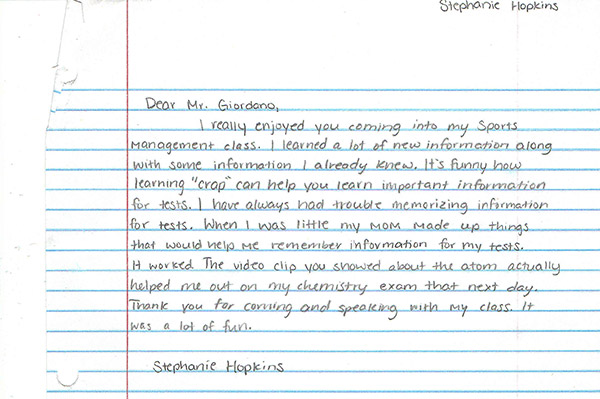 Stephanie Hopkins
Dear Mr. Giordano,
I really enjoyed you coming into my Sports
Management class. I learned a lot of new information along
with some information I already knew. It's funny how
learning "crap" can help you learn important information
for tests. I have always had trouble memorizing information
for tests. When I was little my mom made up things
that would help me remember information for my tests.
It worked. The video clip you showed about the atom actually
helped me out on my chemistry exam that next day.
Thank you for coming and speaking with my class. It
was a lot of fun.
Stephanie Hopkins